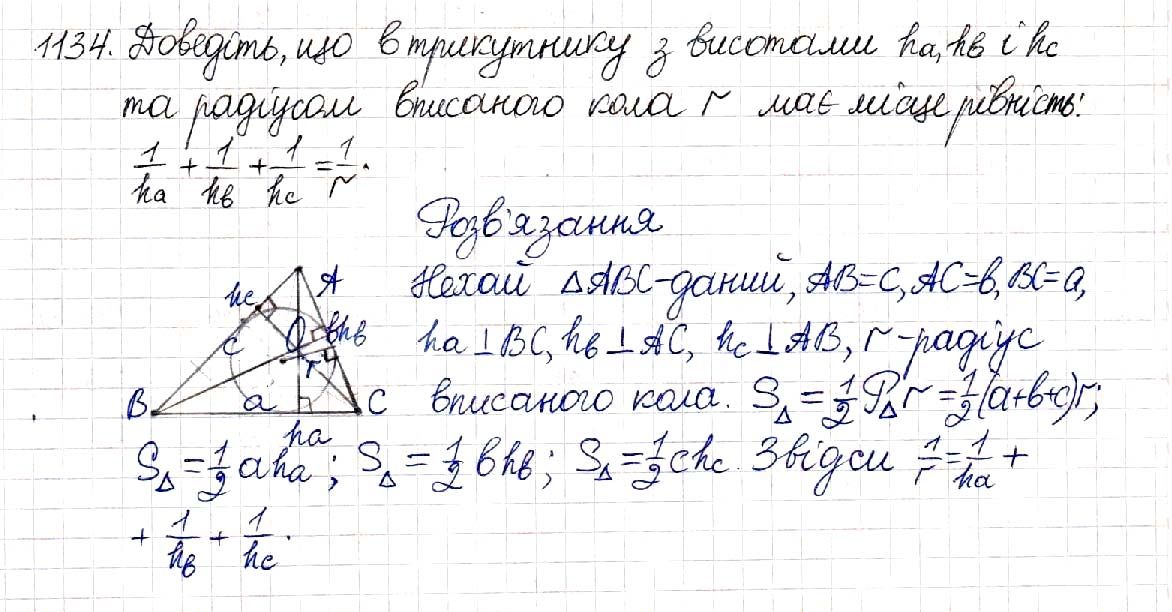 1134. Доведіть, що в трикутнику з висотами hа, hв і hс
та радіусом вписаного кола r має місце рівність:
1/hа + 1/hв + 1/hс = 1/r.
Розв'язання
Нехай △ABC-даний, AB=c, AC=в, BC=a,
hа⊥BC, hв⊥AC, hс⊥AB, r-радіус
вписаного кола. S△=1/2 P△r=1/2(a+в+c)r;
S△=1/2 aha; S△=1/2 вhв; S△=1/2 chc. Звідси 1/r=1/ha+
+ 1/hв + 1/hс.
A
hc
c
O
в
hв
r
B
a
C
ha